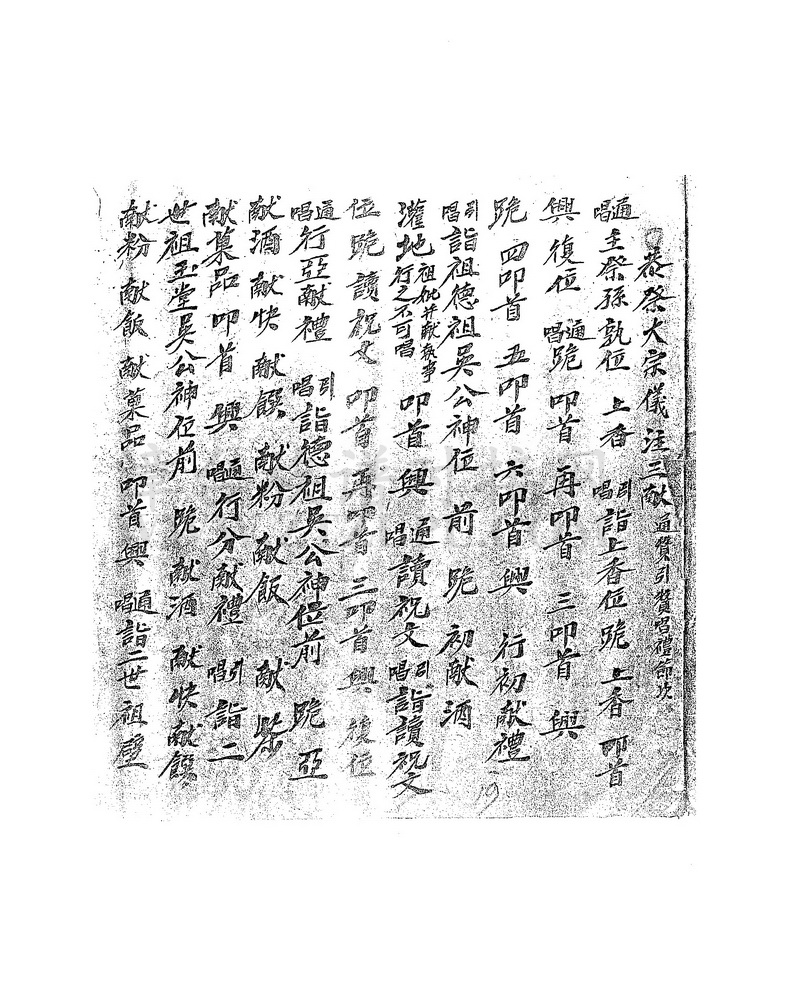 恭祭大宗儀注三献通贊引贊唱禮節次
通唱主祭孫孰位 上香 引唱詣上香位跪 上香 叩首
興 復位 通唱跪 叩首 再叩首 三叩首 興
跪 四叩首 五叩首 六叩首 興 行初献禮
引唱詣祖德祖吳公神位 前 跪 初献酒
灌地祖妣并献執事行之不可唱 叩首 興 通唱讀祝文 引唱詣讀祝文
位 跪 讀祝文 叩首 再叩首 三叩首 興 復位
通唱行亞献禮 引唱詣德祖吳公神位前 跪 亞
献酒 献快 献饌 献粉 献飯 献
献菓品 叩首 興 通唱行分献禮 引唱詣二
世祖玉堂吳公神位前 跪 献酒 献快 献饌
献粉 献飯 献菓品 叩首 興 通唱詣二世祖
19